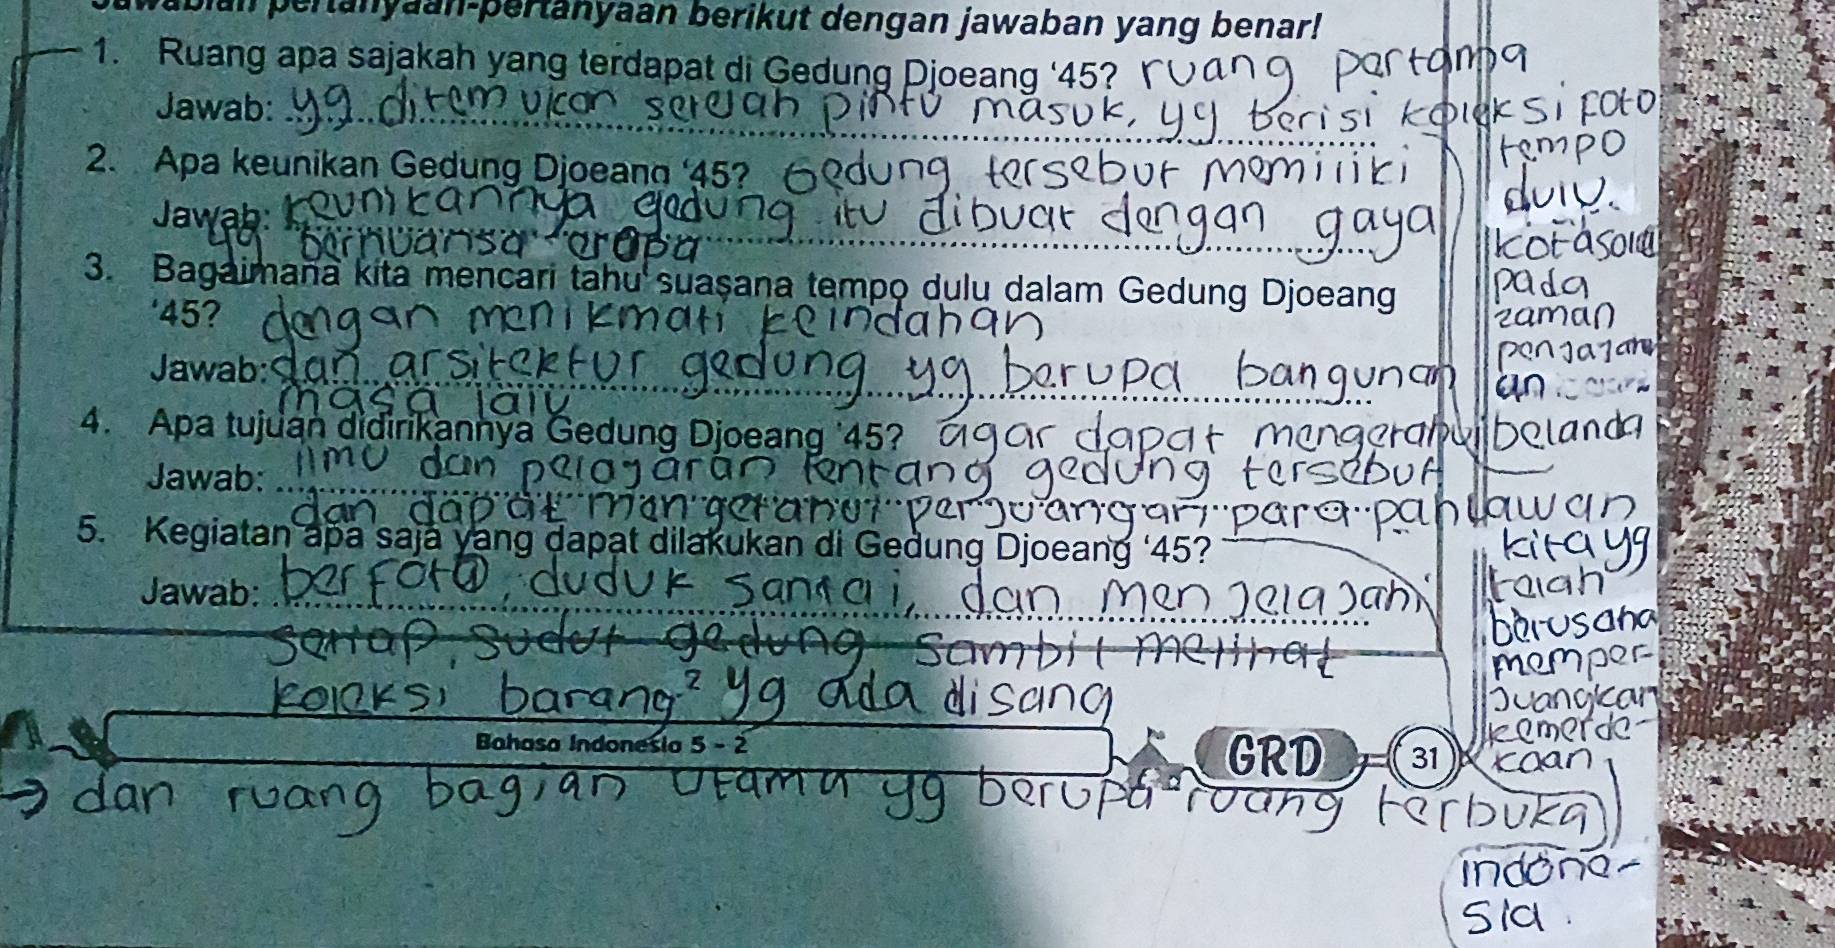 pertanyaan-pertanyaan berikut dengan jawaban yang benar!
1. Ruang apa sajakah yang terdapat di Gedung Djoeang '45? ruang pertama
Jawab: yg ditemukan setelah pintu masuk, yg berisi koleksi foto
tempo
dulu.
kotasola
pada
zaman
penjajah
an
belanda
2. Apa keunikan Gedung Djoeang '45? Gedung tersebut memiliki
Jawab: keunikannya gedung itu dibuat dengan gaya
yg bernuansa eropa
3. Bagaimana kita mencari tahu suasana tempo dulu dalam Gedung Djoeang
'45? dengan menikmati keindahan
Jawab: dan arsitektur gedung yg berupa bangunan
masa lalu
4. Apa tujuan didirikannya Gedung Djoeang '45? agar dapat mengetahui
Jawab: ilmu dan pelajaran tentang gedung tersebut
dan dapat mengetahui perjuangan para pahlawan
kita yg
telah
berusaha
memper-
juangkan
kemerde-
kaan
indone-
sia.
5. Kegiatan apa saja yang dapat dilakukan di Gedung Djoeang '45?
Jawab: berfoto, duduk santai, dan menjelajahi
setiap sudut gedung sambil melihat
koleksi barang² yg ada disana
Bahasa Indonesia 5 - 2
GRD
31
→ dan ruang bagian utama yg berupa ruang terbuka